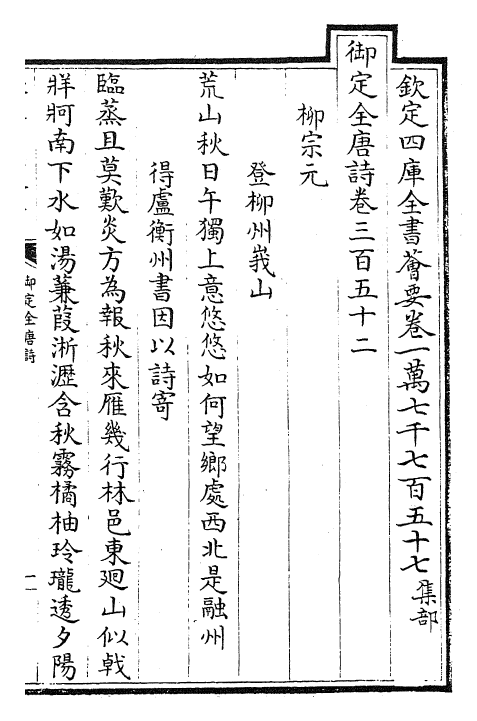 欽定四庫全書薈要卷一萬七千七百五十七集部
御定全唐詩卷三百五十二
柳宗元
登柳州峩山
荒山秋日午獨上意悠悠如何望鄉處西北是融州
得盧衡州書因以詩寄
臨蒸且莫歎炎方為報秋來雁幾行林邑東廻山似戟
牂牁南下水如湯蒹葭淅瀝含秋霧橘柚玲瓏透夕陽
御定全唐詩
一